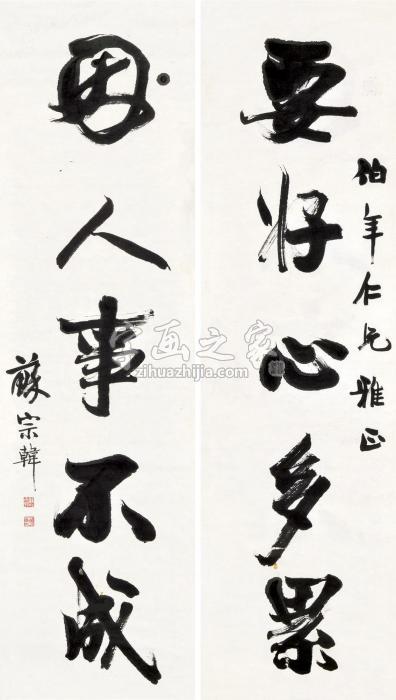 伯年仁兄雅正
要好心多累
因人事不成
蘇宗韓
字画之家
zihuazhijia.com